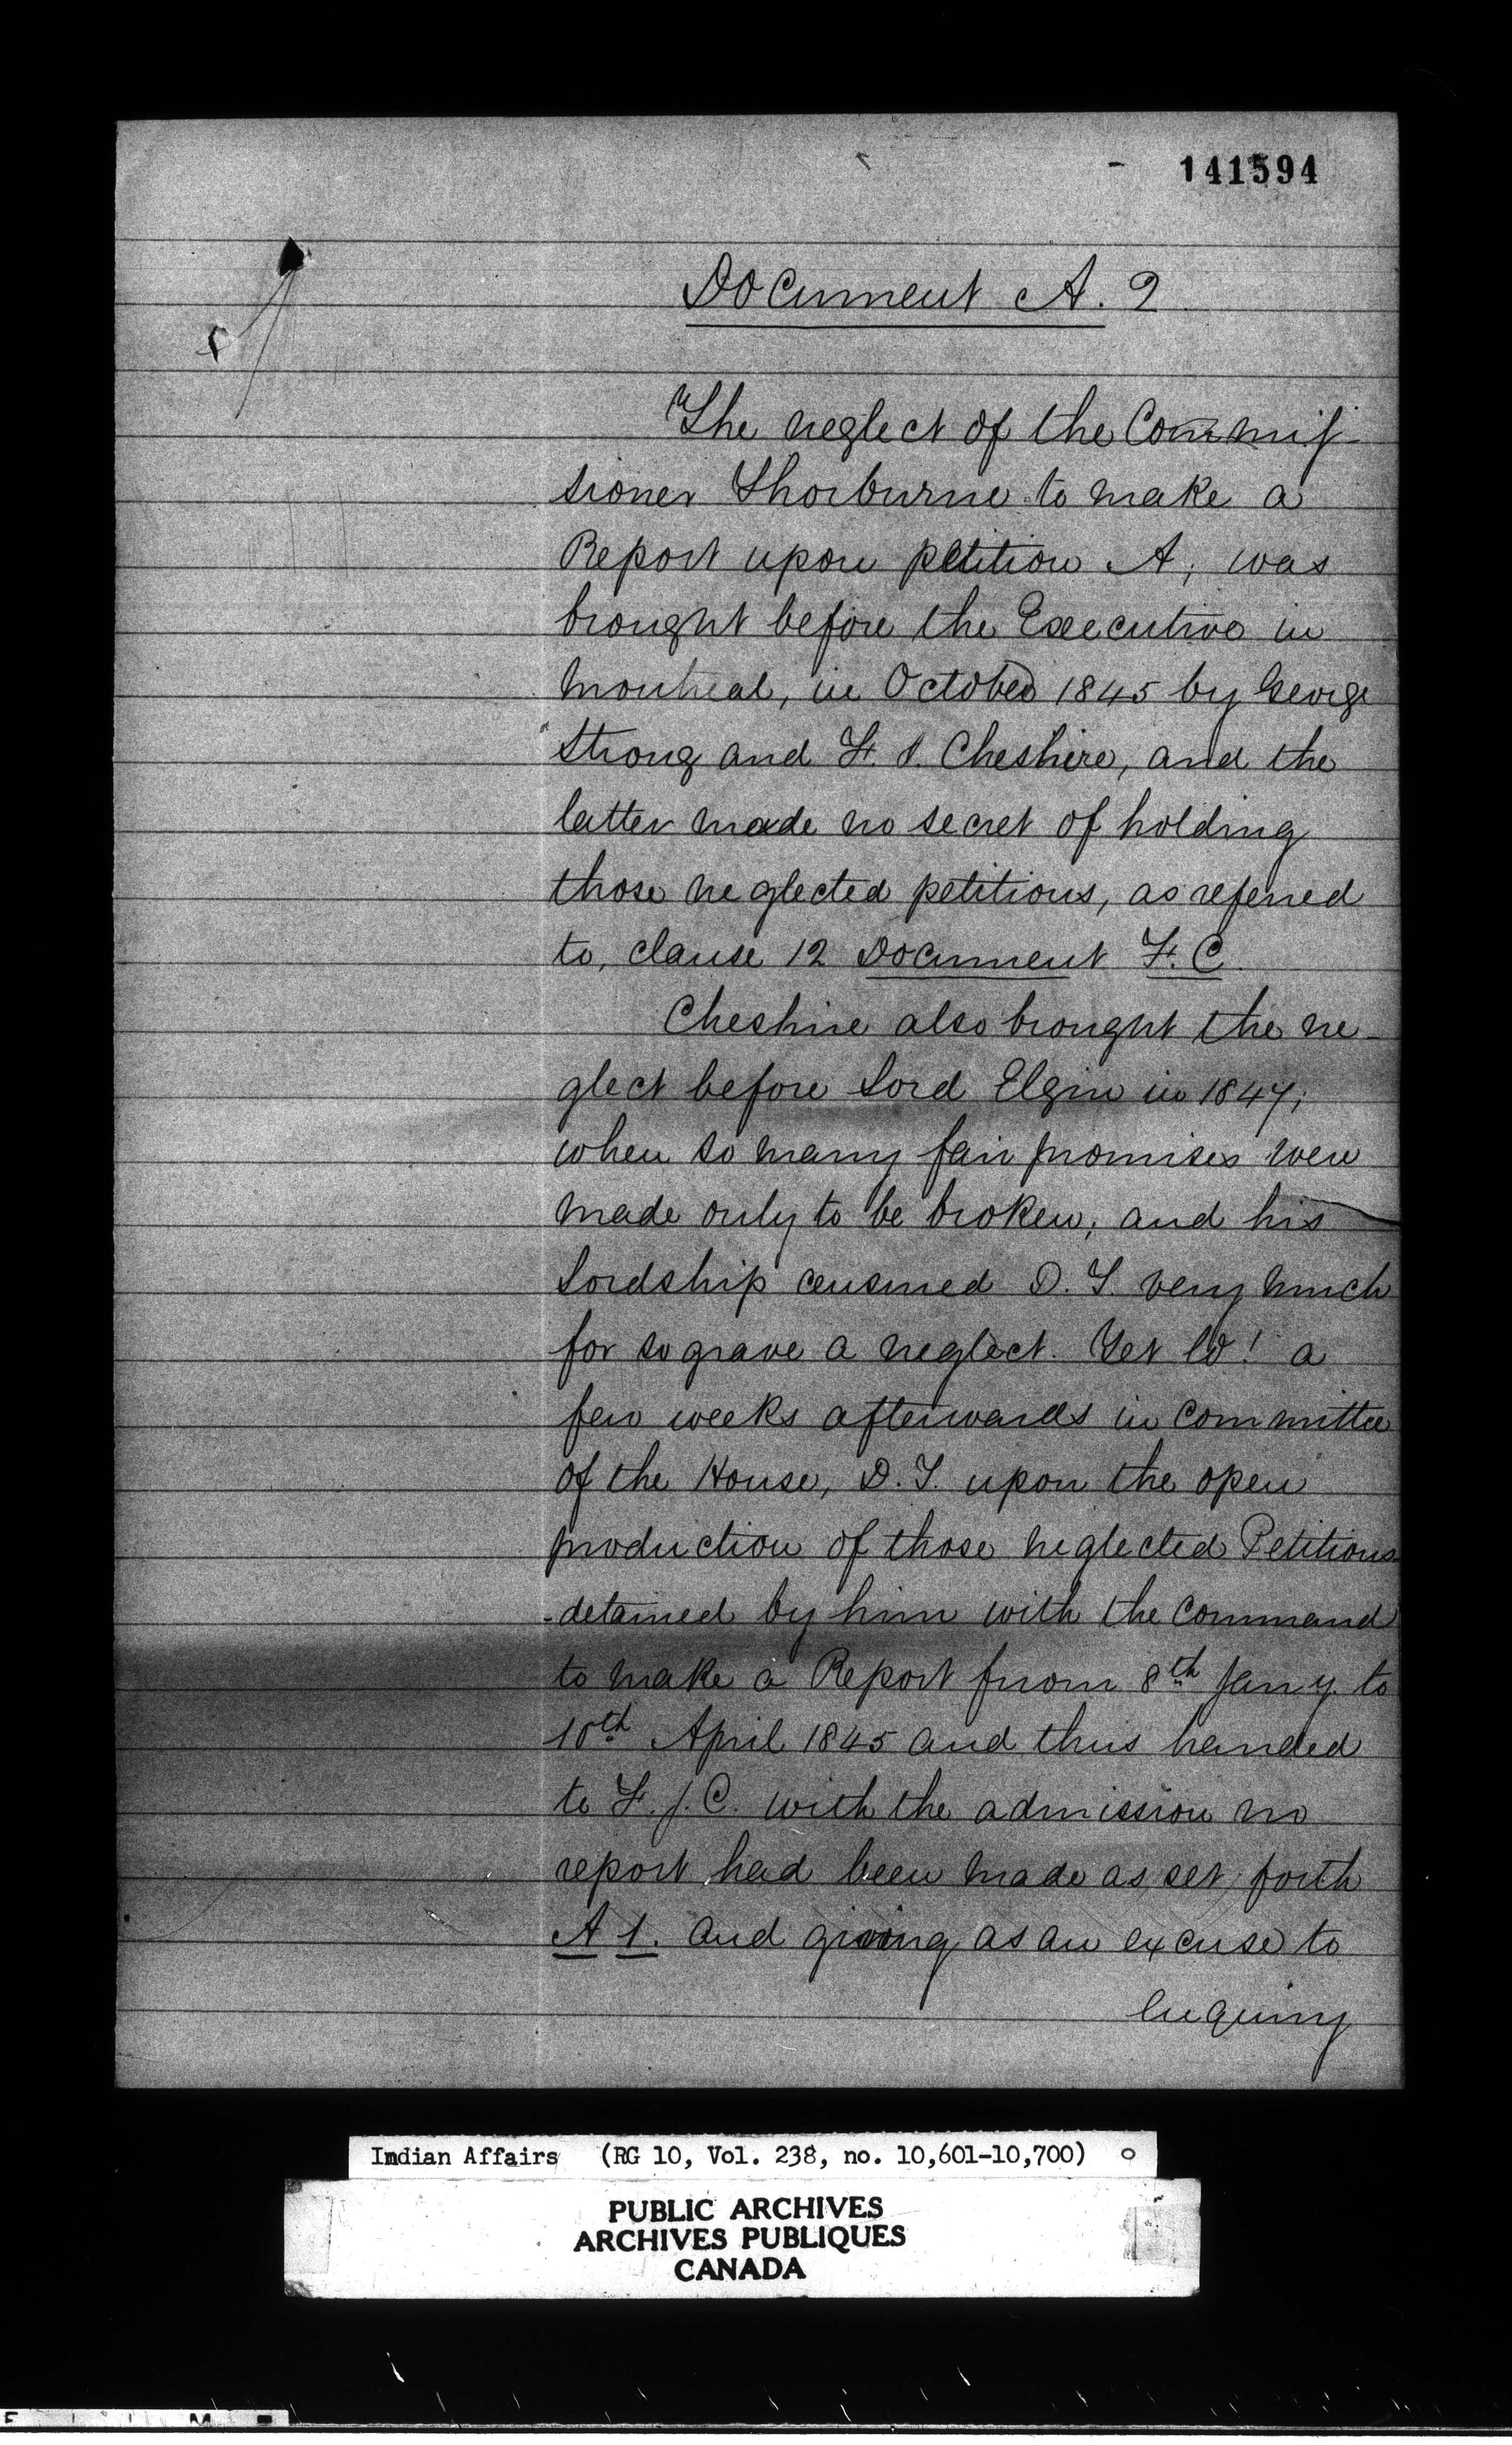 141594
Document A. 2
The neglect of the Commis-
sioner Thorburne to make a
Report upon petition A; was
brought before the Executive in
Montreal, in October 1845 by George
Strong and F. J. Cheshire, and the
latter made no secret of holding
those neglected petitions, as referred
to, clause 12 Document F. C.
Cheshire also brought the ne-
glect before Lord Elgin in 1847;
when so many fair promises were
made only to be broken; and his
Lordship censured D. T. very much
for so grave a neglect. Yet lo! a
few weeks afterwards in Committee
of the House, D. T. upon the open
production of those neglected Petitions
detained by him with the Command
to make a Report from 8th Jany. to
10th April 1845 and thus handed
to F. J. C. with the admission no
report had been made as set forth
A 1. and giving as an excuse to
enquiry
Indian Affairs (RG 10, Vol. 238, no. 10,601-10,700)
PUBLIC ARCHIVES
ARCHIVES PUBLIQUES
CANADA